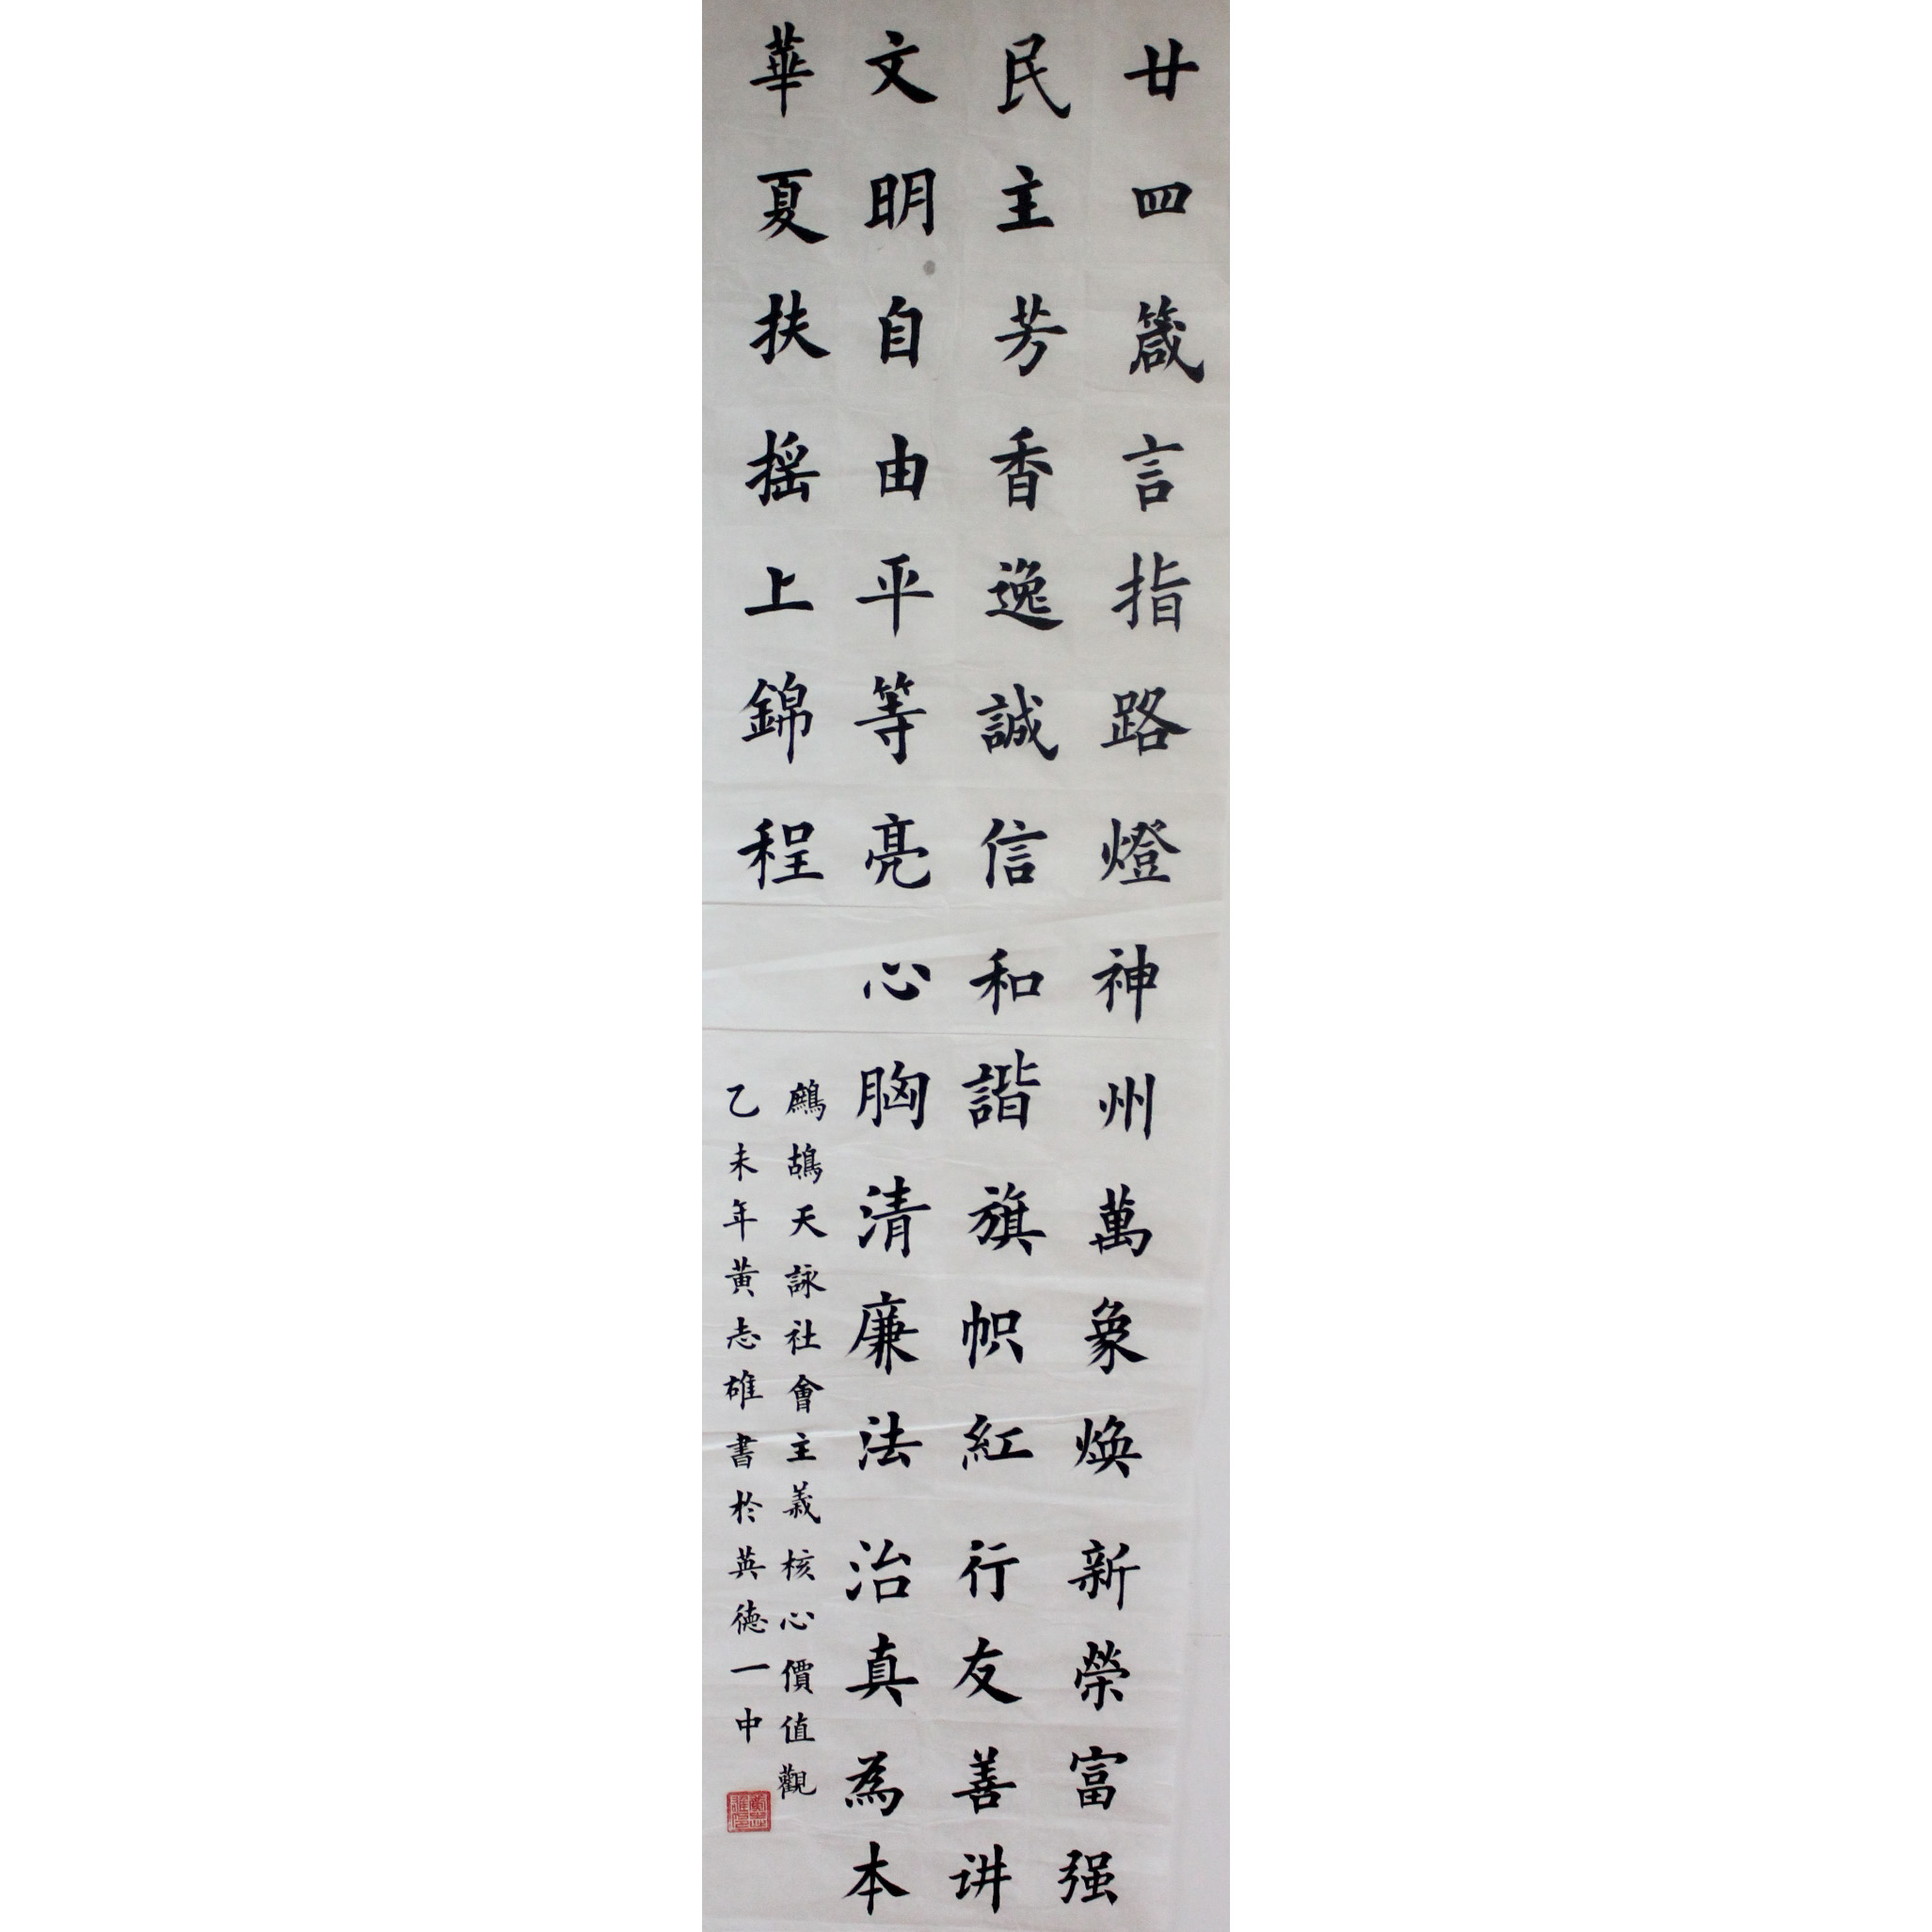 廿四箴言指路燈神州萬象焕新榮富强
民主芳香逸誠信和諧旗帜紅行友善讲
文明自由平等亮心胸清廉法治真為本
華夏扶摇上錦程
鷓鴣天詠社會主義核心價值觀
乙未年黄志雄書於英德一中